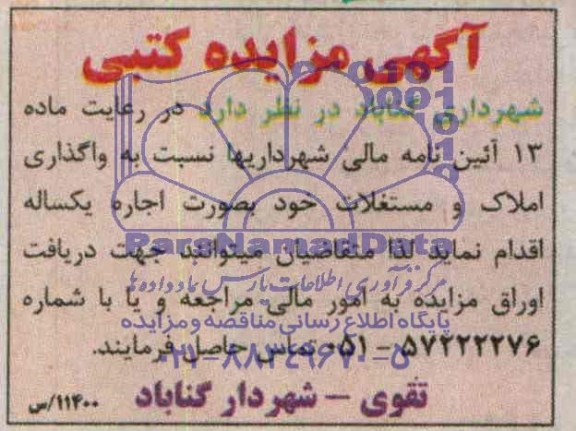 آگهی مزایده کتبی
شهرداری گناباد در نظر دارد در رعایت ماده
۱۳ آئین نامه مالی شهرداریها نسبت به واگذاری
املاک و مستغلات خود بصورت اجاره یکساله
اقدام نماید لذا متقاضیان میتوانند جهت دریافت
اوراق مزایده به امور مالی مراجعه و یا با شماره
۰۵۱-۵۷۲۲۲۲۷۶ تماس حاصل فرمایند.
تقوی – شهردار گناباد
۱۱۴۰۰/س
ParsNamadData
مرکز فرآوری اطلاعات پارس نماد داده ها
پایگاه اطلاع رسانی مناقصه و مزایده
۰۲۱-۸۸۳۴۹۶۷۰-۵